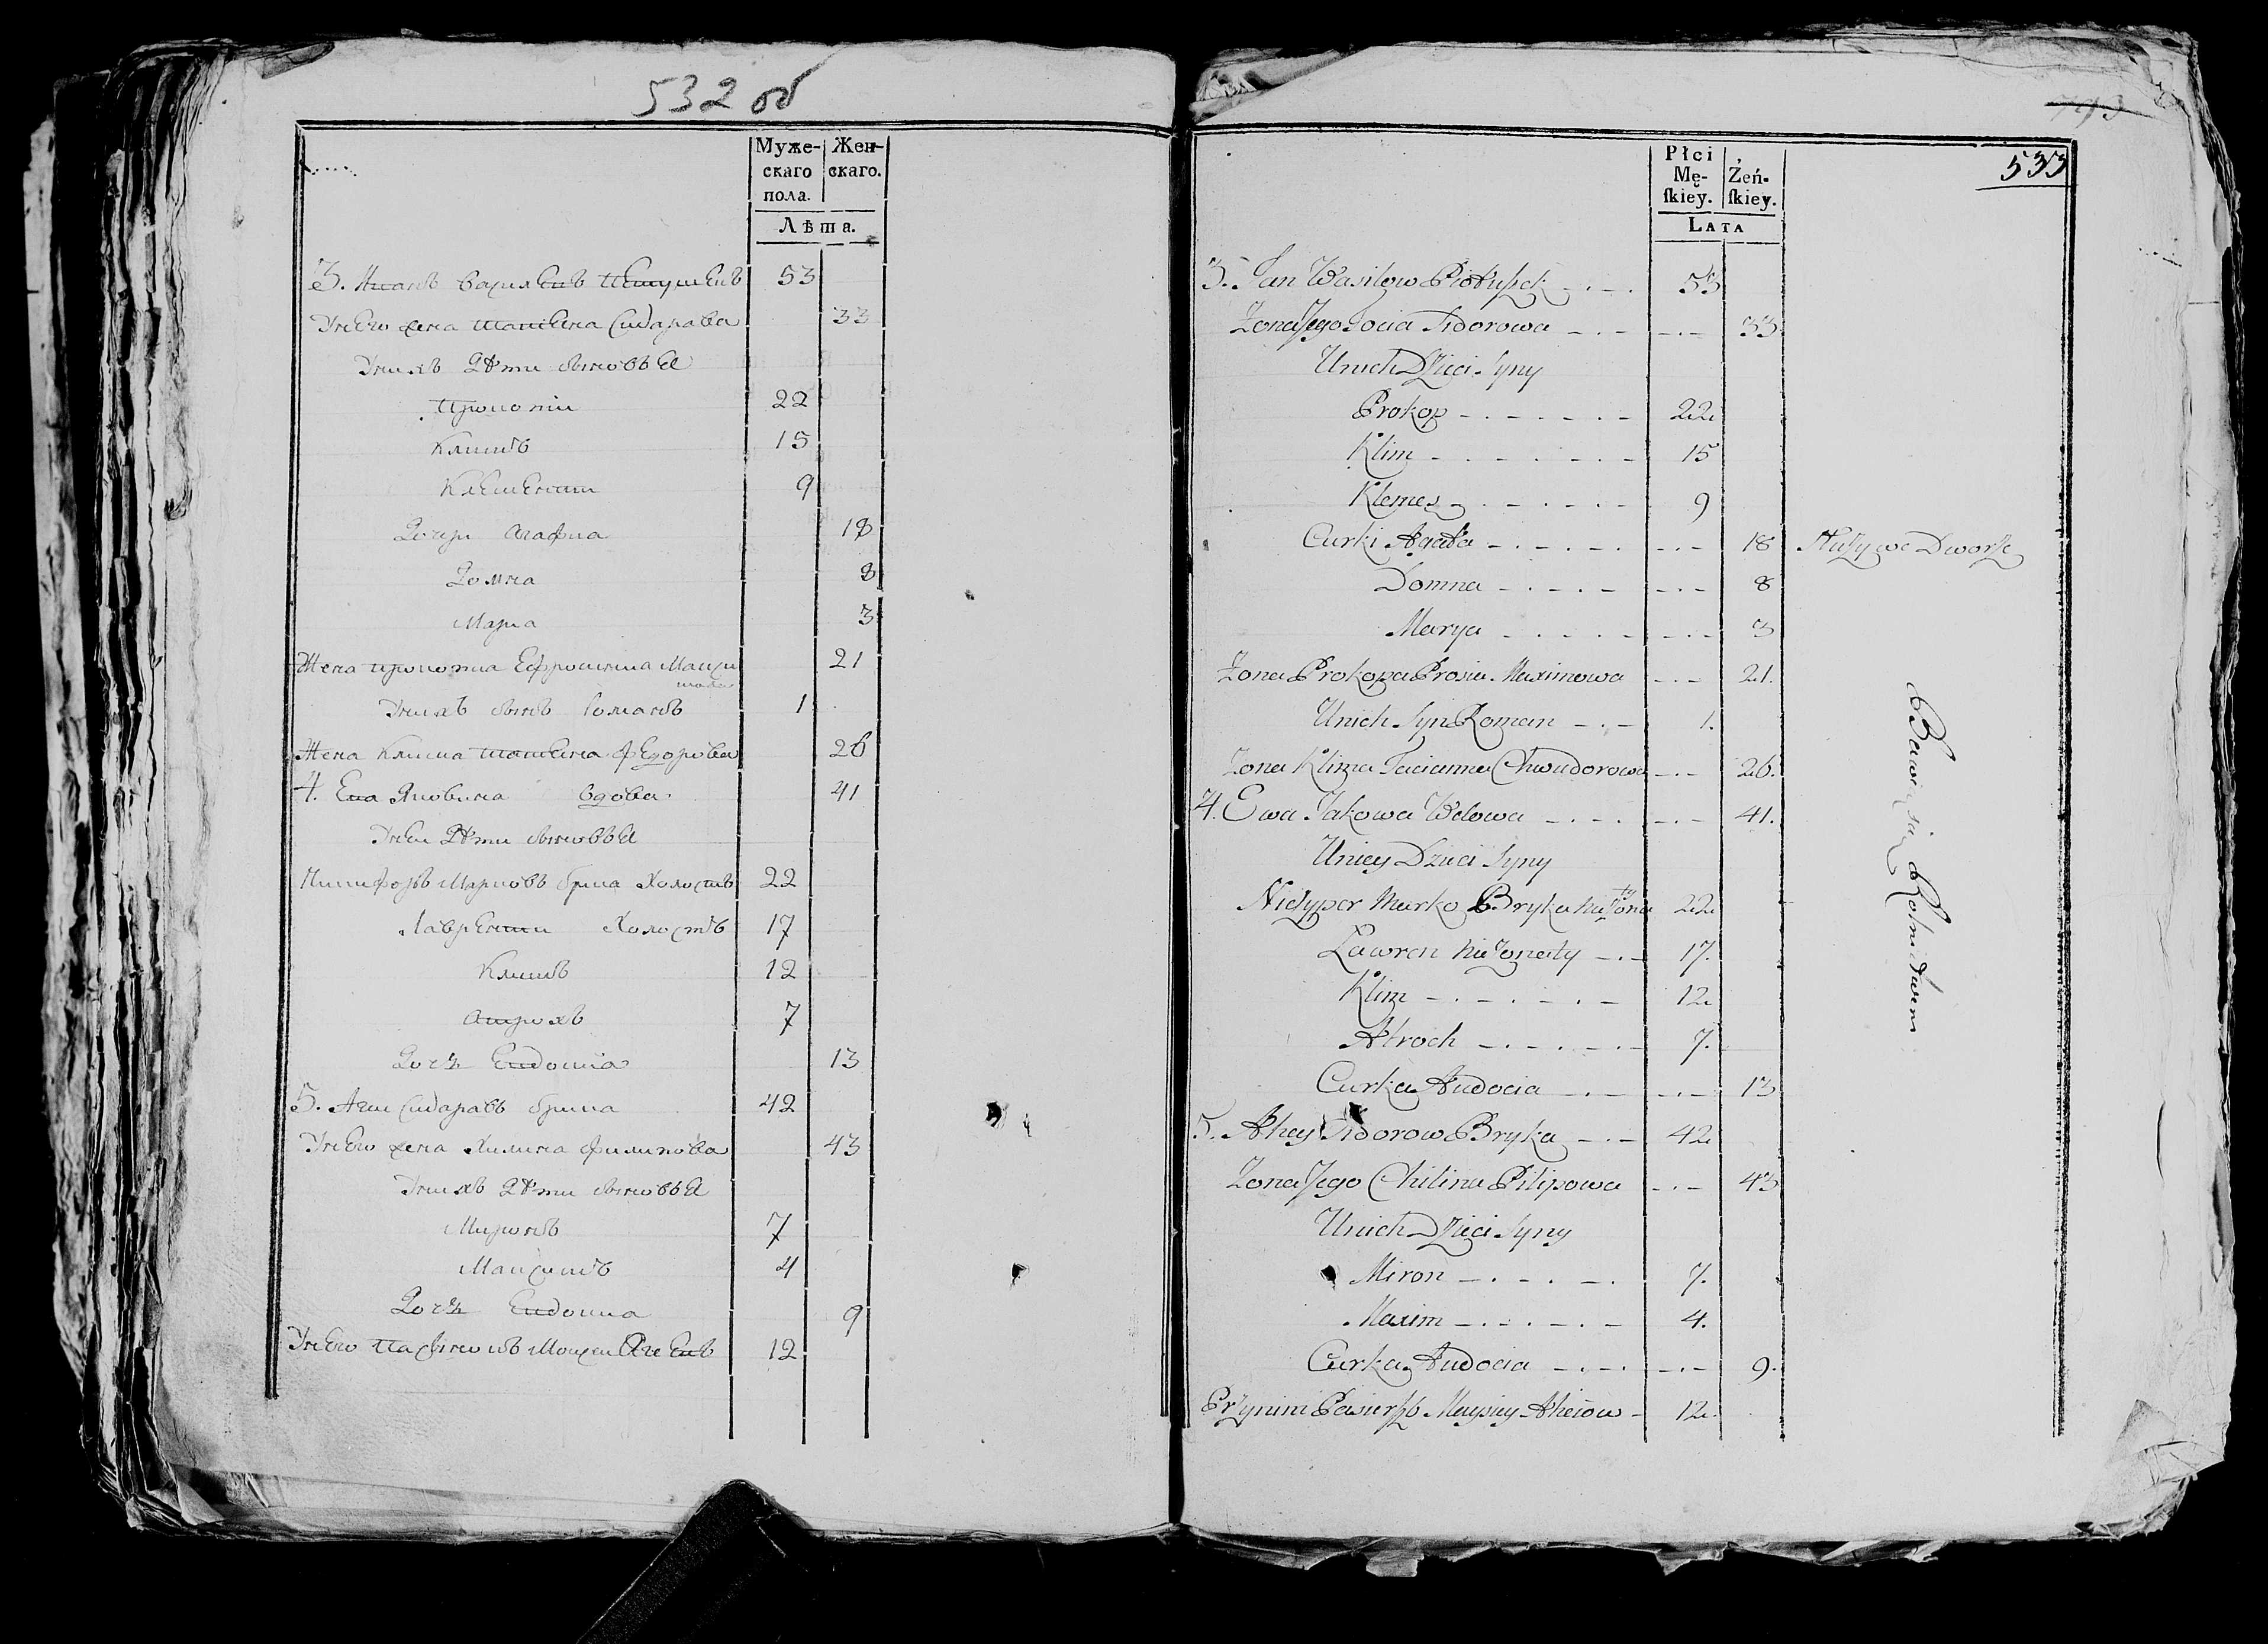 532 об
Муже- Жен-
скаго скаго.
пола.
Лѣта.
3. Иванъ Василевъ 53
Унего жена Сидарава 33
Унихъ дѣти сыновьѣ
Прокопи 22
Климъ 15
Клементи 9
Дочери Агафиа 18
Домна 8
Мариа 3
Жена прокопиа Ефросиниа Макси 21
мова
Унихъ сынъ Романъ 1
Жена Клима Федорова 26
4. Ева Яковина вдова 41
Унеи дѣти сыновьѣ
Никифоръ Марковъ брика Холостъ 22
Лаврентии Холостъ 17
Климъ 12
Атрохъ 7
Дочь Евдокиа 13
5. Аги Сидаравъ брика 42
Унего жена Хилина филипова 43
Унихъ дѣти сыновьѣ
Миронъ 7
Максимъ 4
Дочь Евдокиа 9
Унего 12
793
533
Płci Żeń-
Mę-
ſkiey. ſkiey.
LATA
3. Jan Wasilow 53
Zona Jego Tocia Sidorowa 33
Unich Dzieci Syny
Prokop 22
Klim 15
Klemes 9
Curki Agata 18 Służy we Dworze
Domna 8
Marya 3
Zona Prokopa Prosia Maximowa 21.
Unich Syn Roman 1.
Zona Klima Tacianna Chwudorowa 26.
4. Ewa Jakowa Wdowa 41.
Uniey Dzieci Syny
Marko Bryka 22
Ławren nieżonaty 17.
Klim 12
Atroch 7.
Curka Audocia 13
5. Ahey Sidorow Bryka 42
Zona Jego Chilina Pilipowa 43
Unich Dzieci Syny
Miron 7.
Maxim 4.
Curka Audocia 9.
Przynim Pasierzb Aheiow 12.
Bawi się Rolnictwem